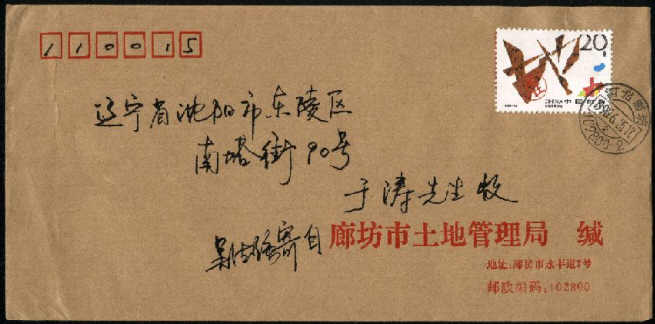 110015
20
中国邮政
辽宁省沈阳市东陵区
南塔街90号
于涛先生收
寄自
廊坊市土地管理局 缄
地址:廊坊市永丰道7号
邮政编码:102800